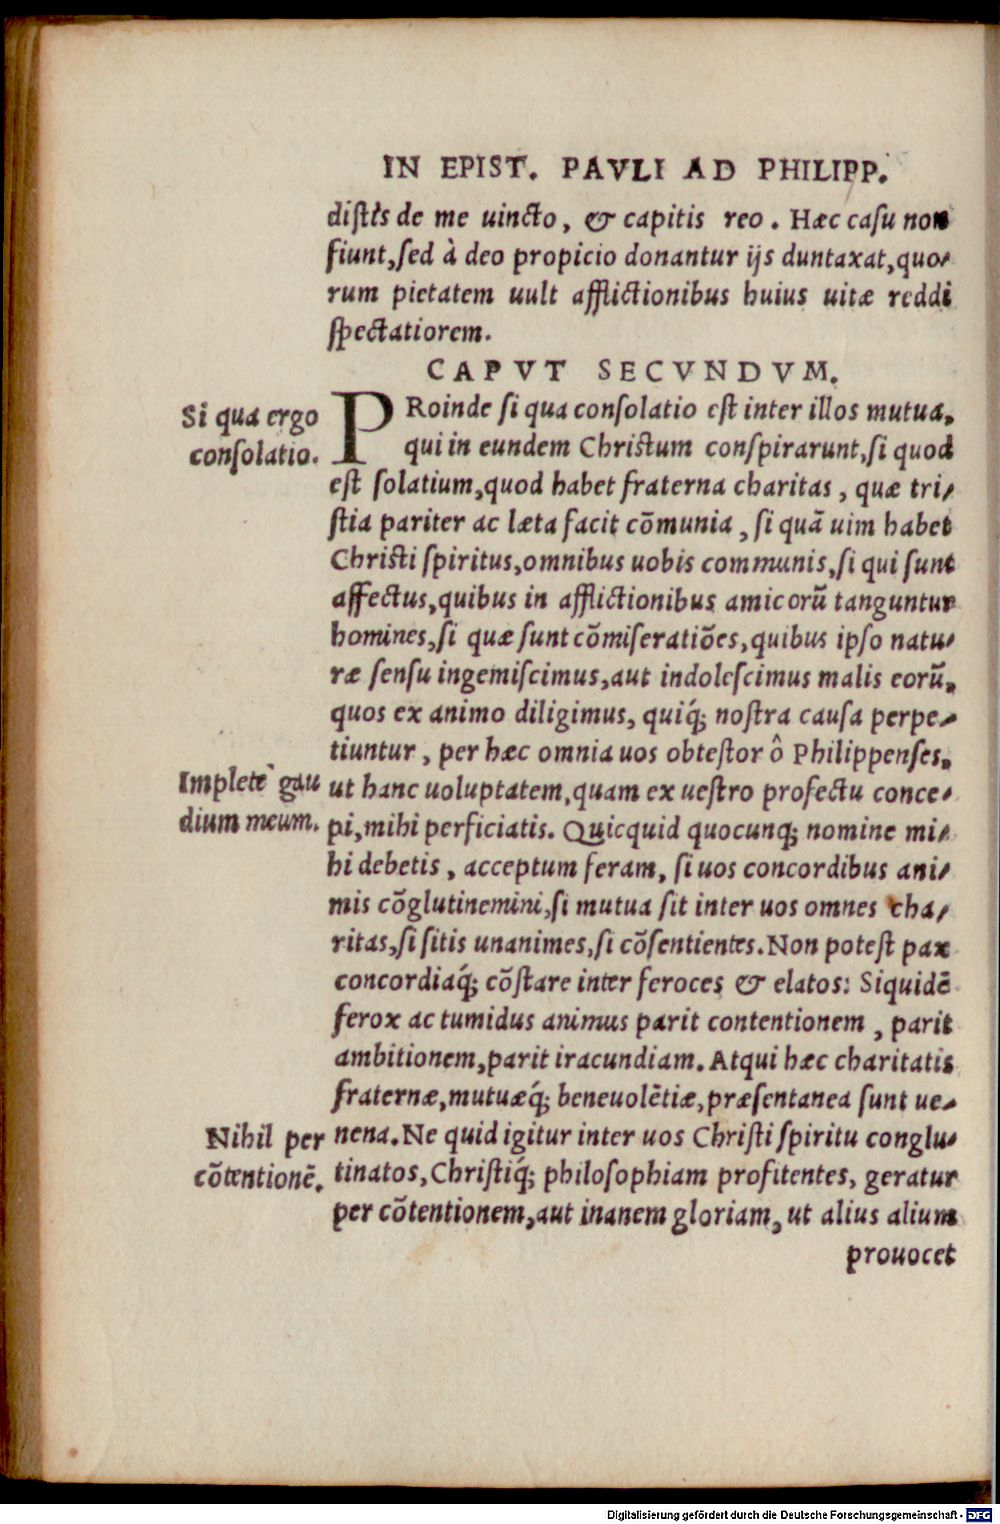 IN EPIST. PAVLI AD PHILIPP.
distis de me uincto, & capitis reo. Hæc casu non
fiunt, sed à deo propicio donantur ijs duntaxat, quo-
rum pietatem uult afflictionibus huius uitæ reddi
spectatiorem.
CAPVT SECVNDVM.
Si qua ergo
consolatio.
PRoinde si qua consolatio est inter illos mutua,
qui in eundem Christum conspirarunt, si quod
est solatium, quod habet fraterna charitas, quæ tri-
stia pariter ac læta facit cõmunia, si quã uim habet
Christi spiritus, omnibus uobis communis, si qui sunt
affectus, quibus in afflictionibus amicorũ tanguntur
homines, si quæ sunt cõmiseratiões, quibus ipso natu-
ræ sensu ingemiscimus, aut indolescimus malis eorũ,
quos ex animo diligimus, quiq́; nostra causa perpe-
tiuntur, per hæc omnia uos obtestor ô Philippenses,
Implete gau
dium meum.
ut hanc uoluptatem, quam ex uestro profectu conce-
pi, mihi perficiatis. Quicquid quocunq; nomine mi-
hi debetis, acceptum feram, si uos concordibus ani-
mis cõglutinemini, si mutua sit inter uos omnes cha-
ritas, si sitis unanimes, si cõsentientes. Non potest pax
concordiaq́; cõstare inter feroces & elatos: Siquidẽ
ferox ac tumidus animus parit contentionem, parit
ambitionem, parit iracundiam. Atqui hæc charitatis
fraternæ, mutuæq́; beneuolẽtiæ, præsentanea sunt ue-
Nihil per
cõtentionẽ.
nena. Ne quid igitur inter uos Christi spiritu conglu-
tinatos, Christiq́; philosophiam profitentes, geratur
per cõtentionem, aut inanem gloriam, ut alius alium
prouocet
Digitalisierung gefördert durch die Deutsche Forschungsgemeinschaft - DFG